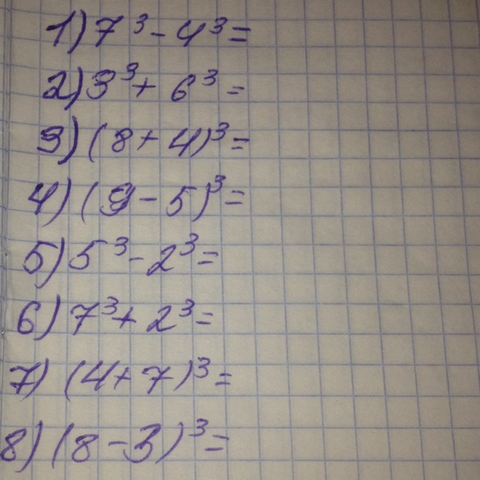 1) 7³ - 4³ =
2) 3³ + 6³ =
3) (8 + 4)³ =
4) (9 - 5)³ =
5) 5³ - 2³ =
6) 7³ + 2³ =
7) (4 + 7)³ =
8) (8 - 3)³ =